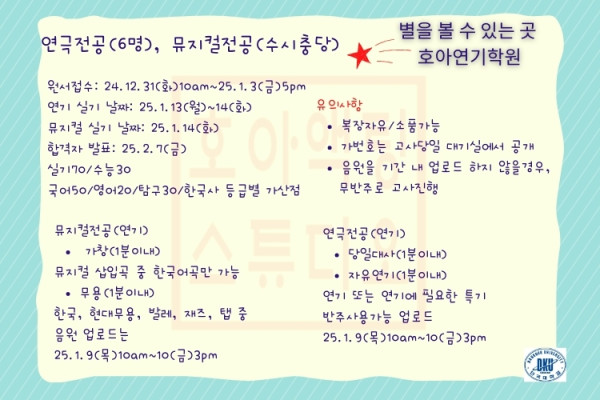 연극전공(6명), 뮤지컬전공(수시충당)
별을 볼 수 있는 곳
호아연기학원
원서접수: 24.12.31(화)10am~25.1.3(금)5pm
연기 실기 날짜: 25.1.13(월)~14(화)
뮤지컬 실기 날짜: 25.1.14(화)
합격자 발표: 25.2.7(금)
실기70/수능30
국어50/영어20/탐구30/한국사 등급별 가산점
유의사항
• 복장자유/소품가능
• 가번호는 고사당일 대기실에서 공개
• 음원을 기간 내 업로드 하지 않을경우,
무반주로 고사진행
뮤지컬전공(연기)
• 가창(1분이내)
뮤지컬 삽입곡 중 한국어곡만 가능
• 무용(1분이내)
한국, 현대무용, 발레, 재즈, 탭 중
음원 업로드는
25.1.9(목)10am~10(금)3pm
연극전공(연기)
• 당일대사(1분이내)
• 자유연기(1분이내)
연기 또는 연기에 필요한 특기
반주사용가능 업로드
25.1.9(목)10am~10(금)3pm
DANKOOK UNIVERSITY
DKU
단국대학교